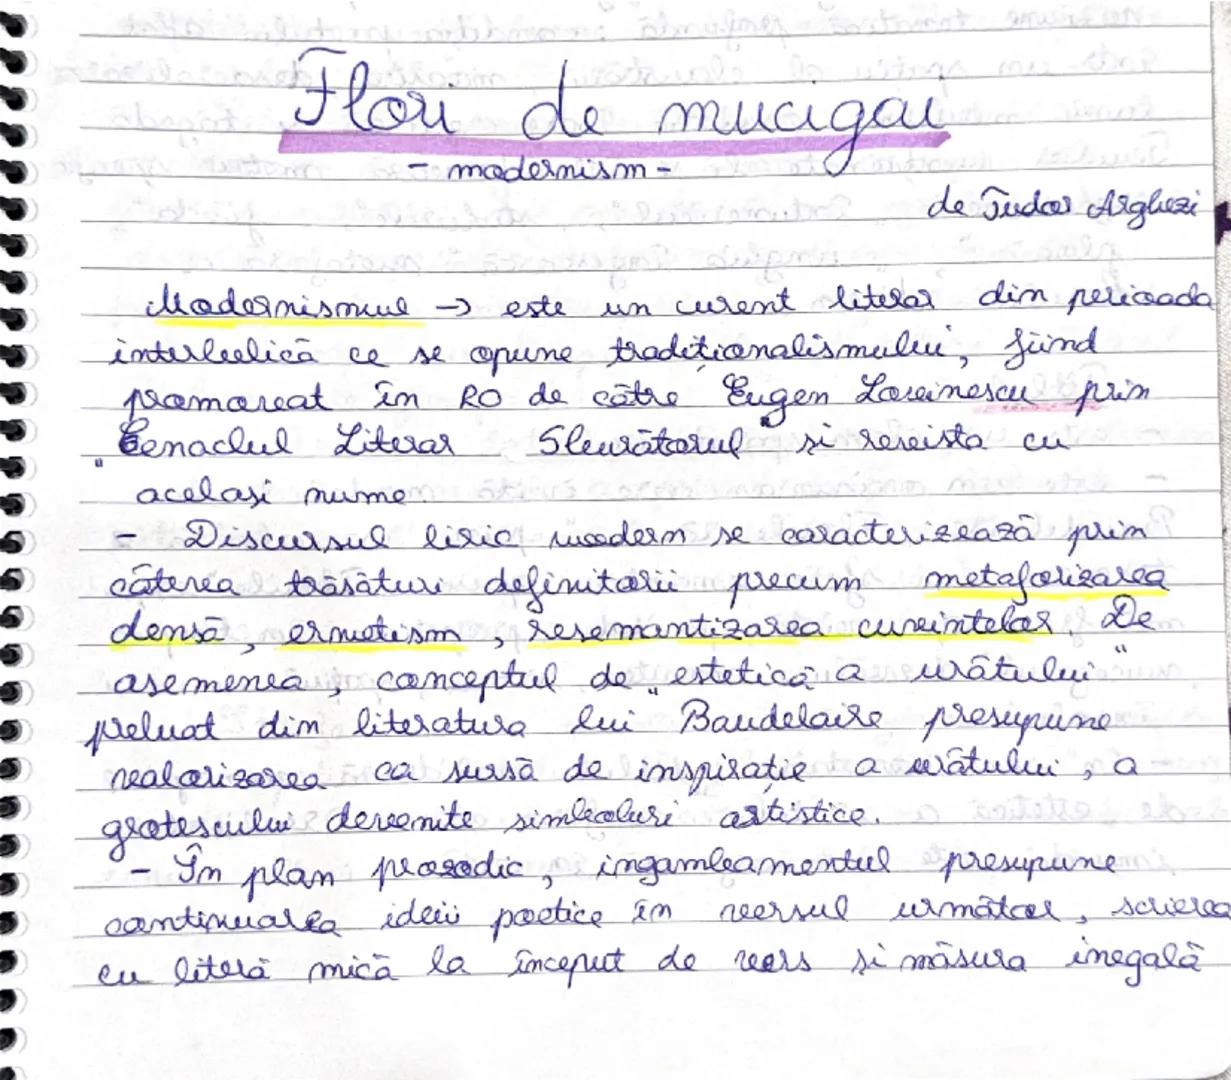 Flori de mucigai
- modernism -
de Tudor Arghezi
Modernismul → este un curent literar din perioada
interbelică ce se opune tradiționalismului, fiind
promovat în RO de către Eugen Lovinescu prin
Cenaclul Literar Sburătorul și revista cu
"
același nume.
- Discursul liric modern se caracterizează prin
câteva trăsături definitorii precum metaforizarea
densă, ermetism, resemantizarea cuvintelor. De
asemenea, conceptul de „estetică a urâtului"
preluat din literatura lui Baudelaire presupune
valorizarea ca sursă de inspirație a urâtului, a
grotescului devenite simboluri artistice.
- În plan prozodic, ingambamentul presupune
continuarea ideii poetice în versul următor, scrierea
cu literă mică la început de vers și măsura inegală